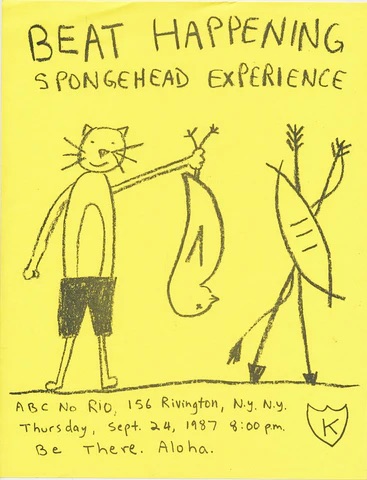 BEAT HAPPENING
SPONGEHEAD EXPERIENCE
ABC No RIO, 156 Rivington, N.y. N.y.
Thursday, Sept. 24, 1987 8:00 pm.
Be There. Aloha.
K